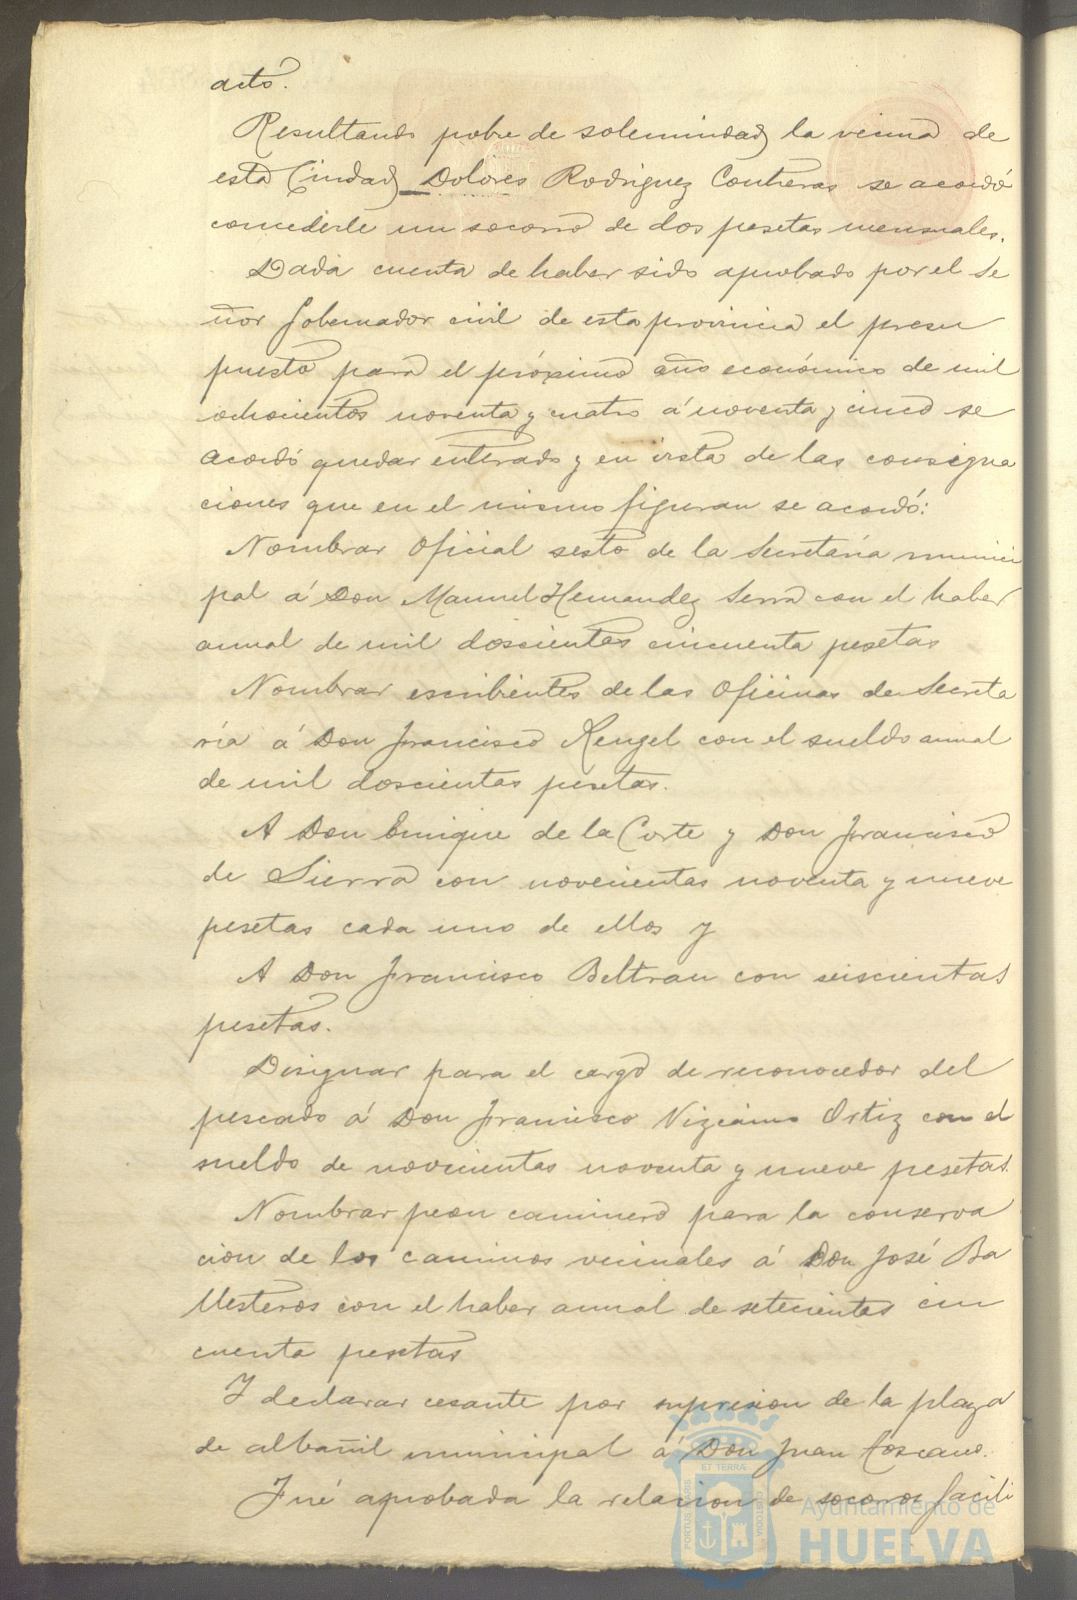 acto.
Resultando pobre de solemnidad la vecina de
esta Ciudad Dolores Rodriguez Contreras se acordó
concederle un socorro de dos pesetas mensuales.
Dada cuenta de haber sido aprobado por el Se
ñor Gobernador civil de esta provincia el presu
puesto para el próximo año económico de mil
ochocientos noventa y cuatro á noventa y cinco se
acordó quedar enterado y en vista de las consigna
ciones que en el mismo figuran se acordó:
Nombrar Oficial sesto de la Secretaría munici
pal á Don Manuel Hernandez Serra con el haber
anual de mil doscientas cincuenta pesetas
Nombrar escribientes de las Oficinas de Secreta
ría á Don Francisco Rengel con el sueldo anual
de mil doscientas pesetas.
A Don Enrique de la Corte y Don Francisco
de Sierra con novecientas noventa y nueve
pesetas cada uno de ellos y
A Don Francisco Beltran con seiscientas
pesetas.
Designar para el cargo de reconocedor del
pescado á Don Francisco Vizcaino Ortiz con el
sueldo de novecientas noventa y nueve pesetas.
Nombrar peon caminero para la conserva
cion de los caminos vecinales á Don José Ba
llesteros con el haber anual de setecientas cin
cuenta pesetas
Y declarar cesante por supresion de la plaza
de albañil municipal á Don Juan Toscano.
Fué aprobada la relacion de socorros facili
ET TERRÆ
PORTUS MARIS
CUSTODIA
Ayuntamiento de
HUELVA